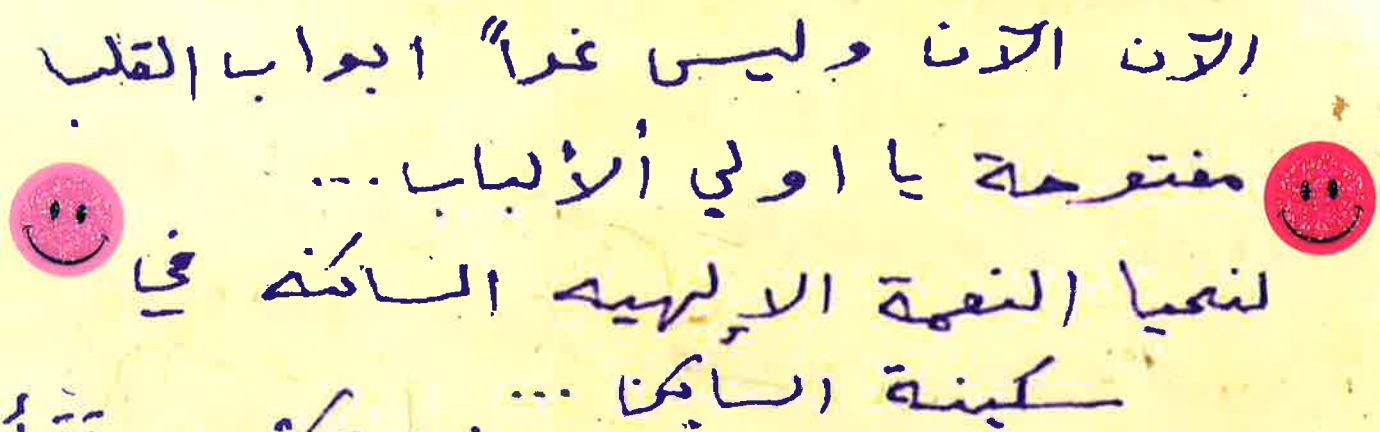 الآن الآن وليس غداً ابواب القلب
مفتوحة يا اولي ألألباب...
لنحيا النعمة الالهيه الساكنه في
سكينة الساكن ...